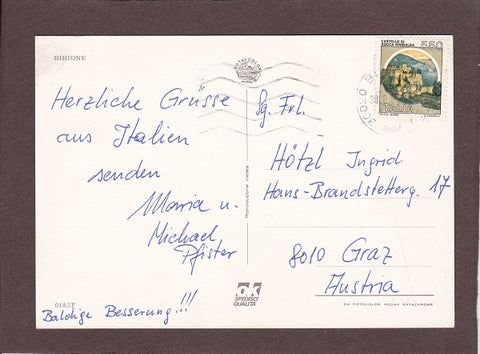 BIBIONE
Herzliche Grüsse
aus Italien
senden
Maria u.
Michael
Pfister
Baldige Besserung!!!
0183F
Sg. Frl.
Hötzl Ingrid
Hans-Brandstetterg. 17
8010 Graz
Austria
CASTELLO DI
ROCCA SINIBALDA
550
ITALIA
Riproduzione vietata
OK
SPEDISCI
QUALITÀ
DA FOTOCOLOR KODAK EKTACHROME